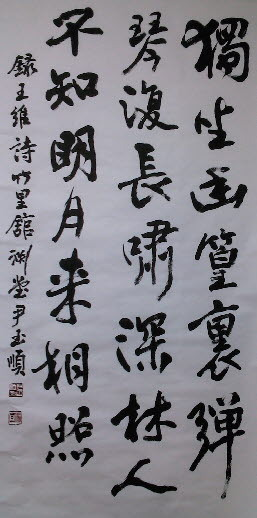 獨坐幽篁裏彈
琴復長嘯深林人
不知明月来相照
録王維詩竹里舘堂尹玉順